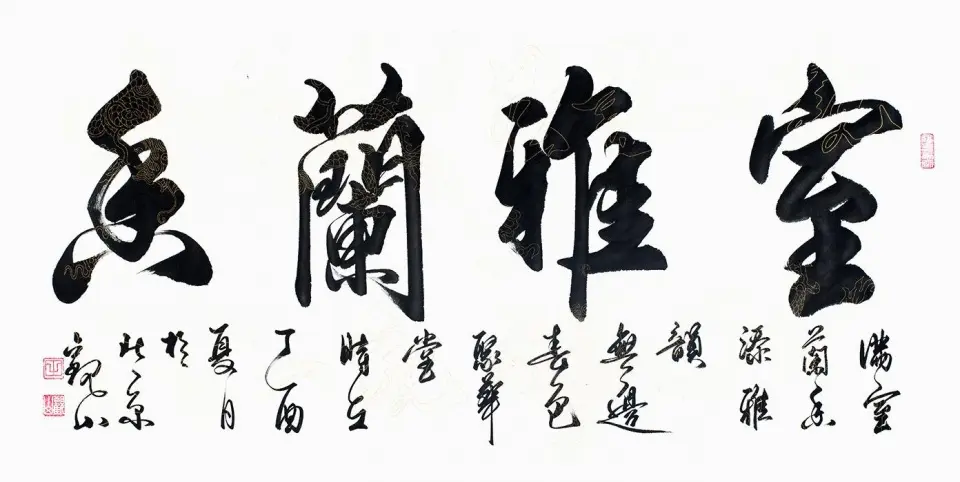 室雅蘭香
滿室
蘭香
添雅
韻
無邊
春色
聚華
堂
時在
丁酉
夏月
於
北京
觀山